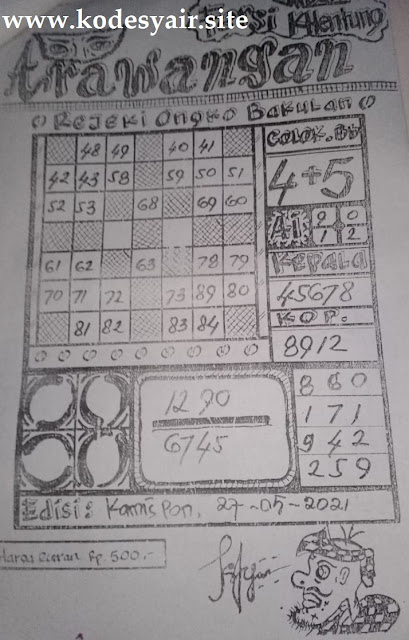 www.kodesyair.site
Klentung
Arawangan
Rejeki Ongko Bakulan
48 49 40 41
42 43 58 59 50 51
52 53 68 69 60
61 62 63 78 79
70 71 72 73 89 80
81 82 83 84
COLOK.BB
4+5
AI
KEPALA
45678
KOP.
8912
1290
6745
860
171
942
259
Edisi: Kamis Pon, 27-05-2021
Rp. 500,-